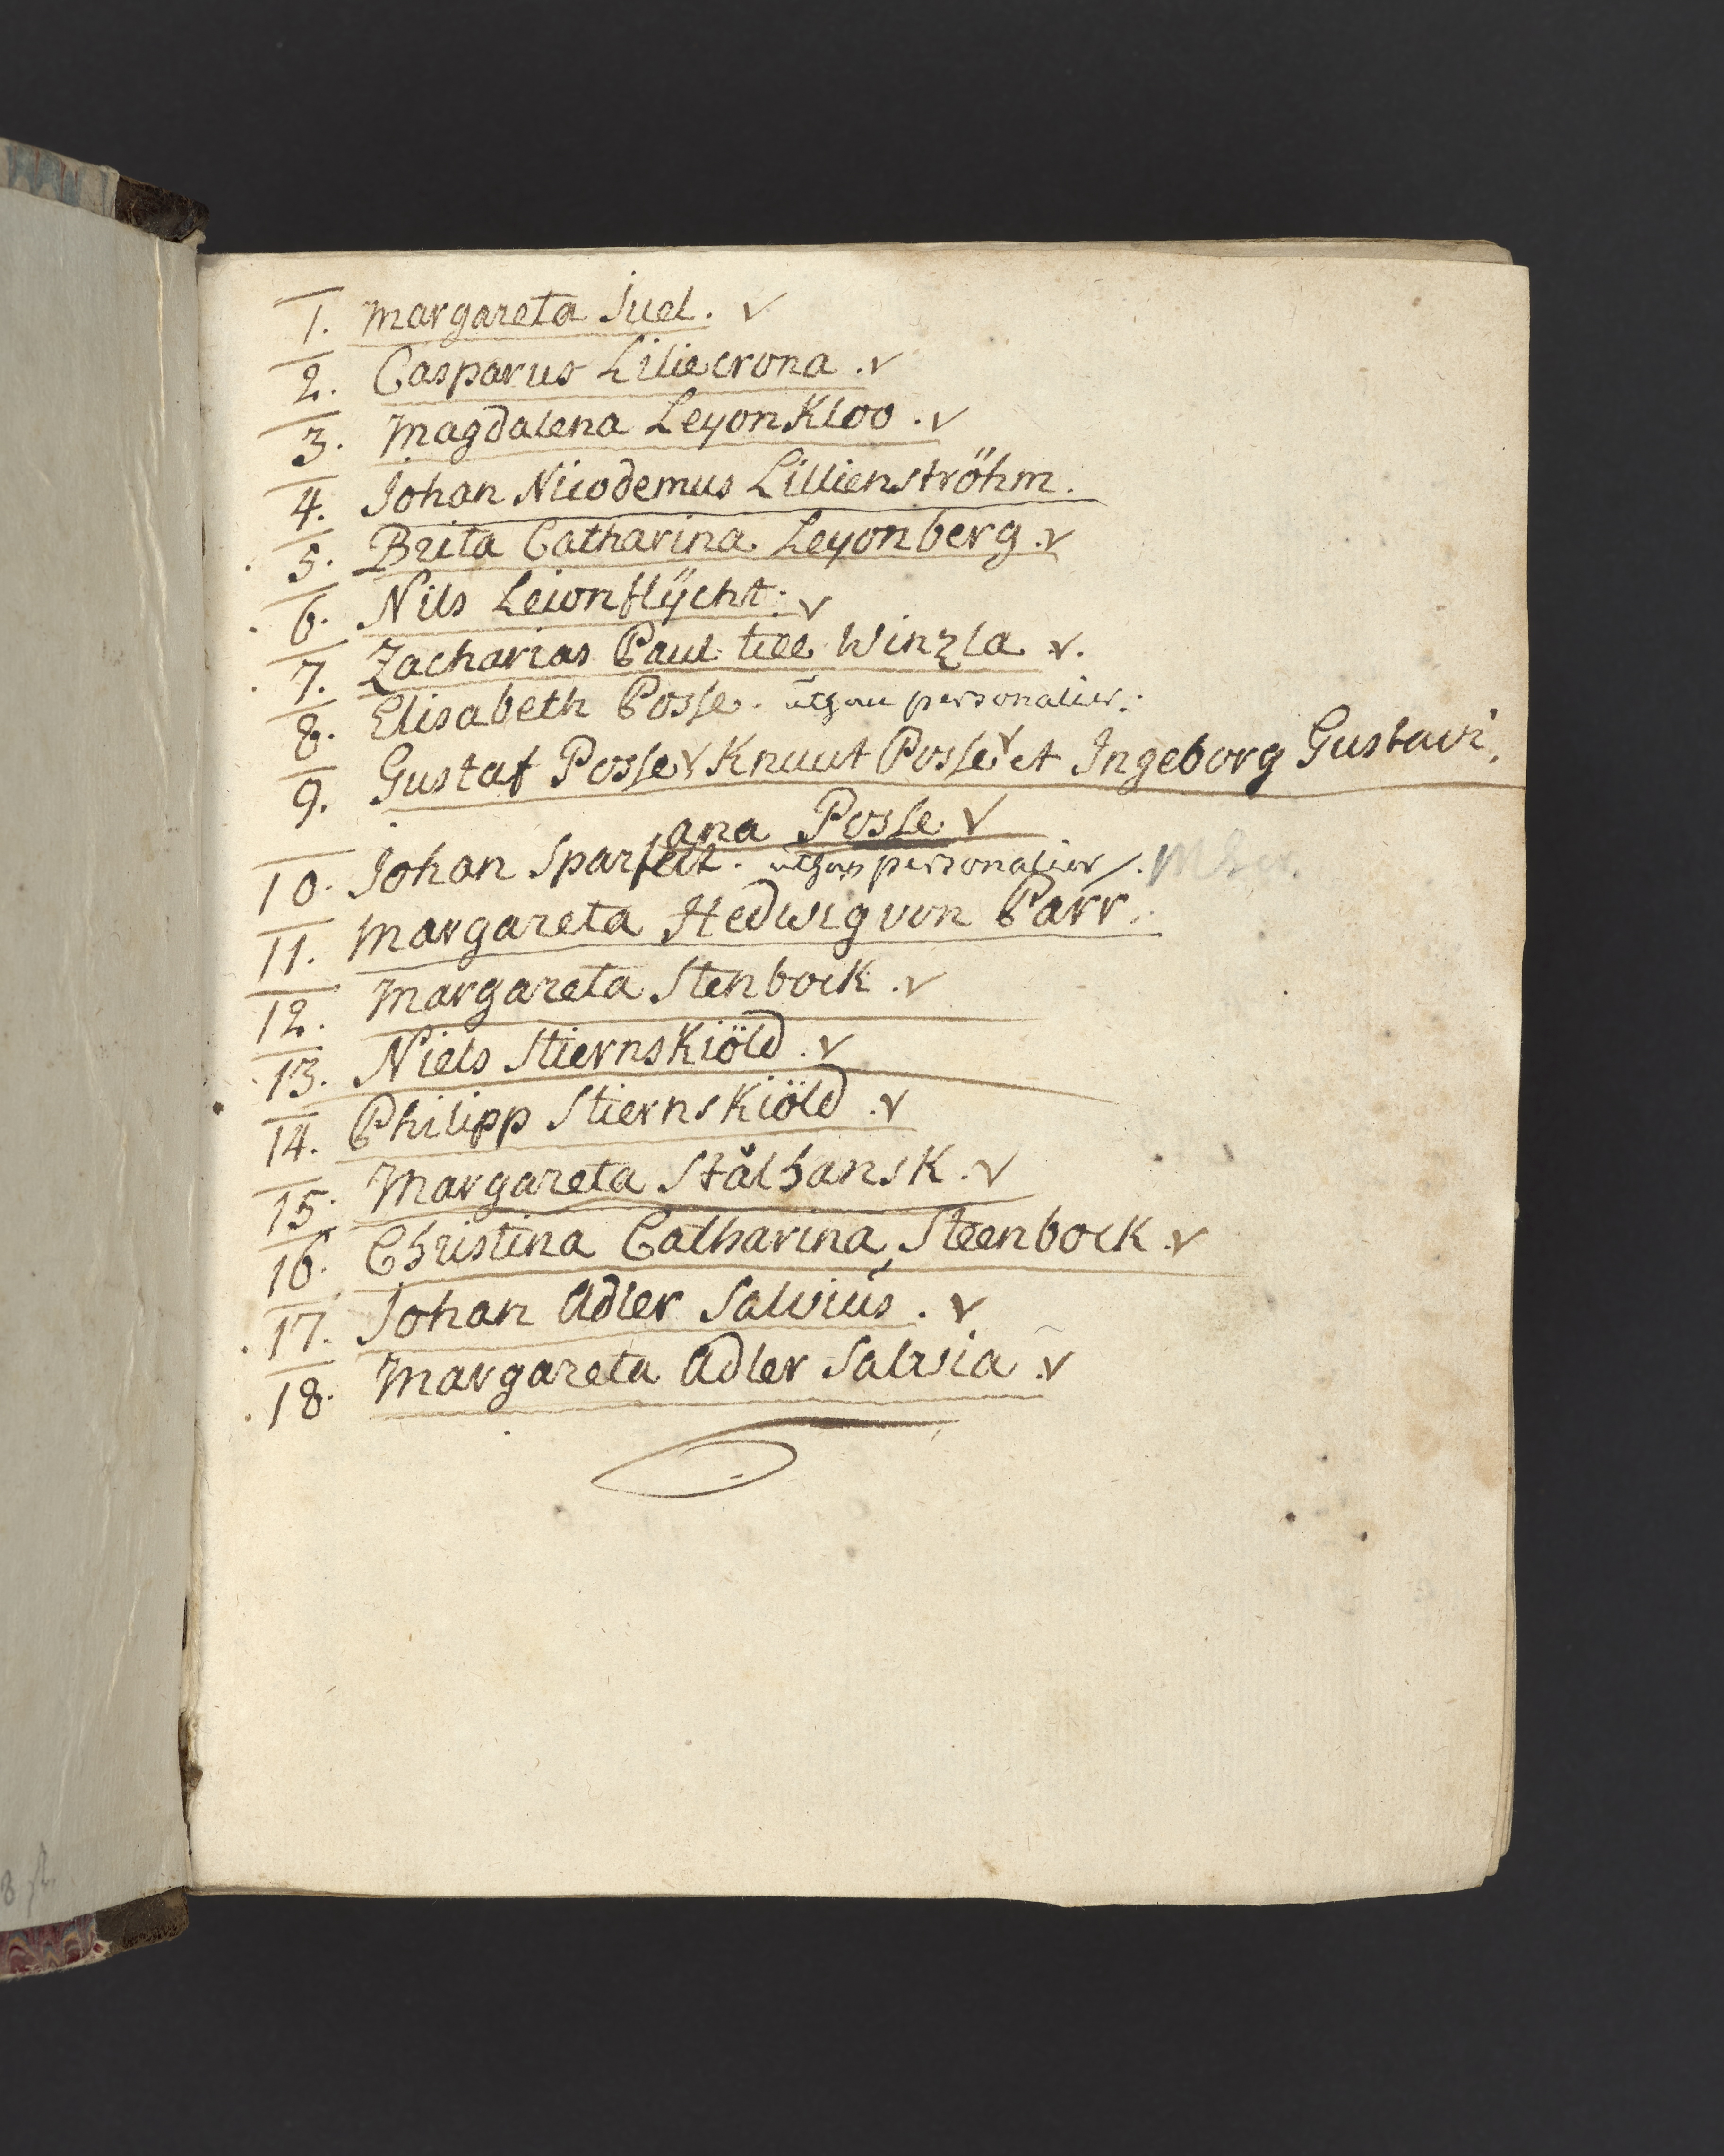 1. Margareta Juel. v
2. Casparus Liliecrona. v
3. Magdalena LeyonKloo. v
4. Johan Nicodemus Lillienströhm.
5. Brita Catharina Leyonberg. v
6. Nils Leionflÿcht. v
7. Zacharias Paul till Winzla v.
8. Elisabeth Posse. utan personalier.
9. Gustaf Posse v Knuut Posse v et Ingeborg Gustavi
ana Posse v
10. Johan Sparfelt. utan personalier
11. Margareta Hedwig von Parr.
12. Margareta Stenbock. v
13. Niels StiernsKiöld. v
14. Philipp StiernsKiöld. v
15. Margareta Stålhansk. v
16. Christina Catharina Steenbock. v
17. Johan Adler Salvius. v
18. Margareta Adler Salvia. v